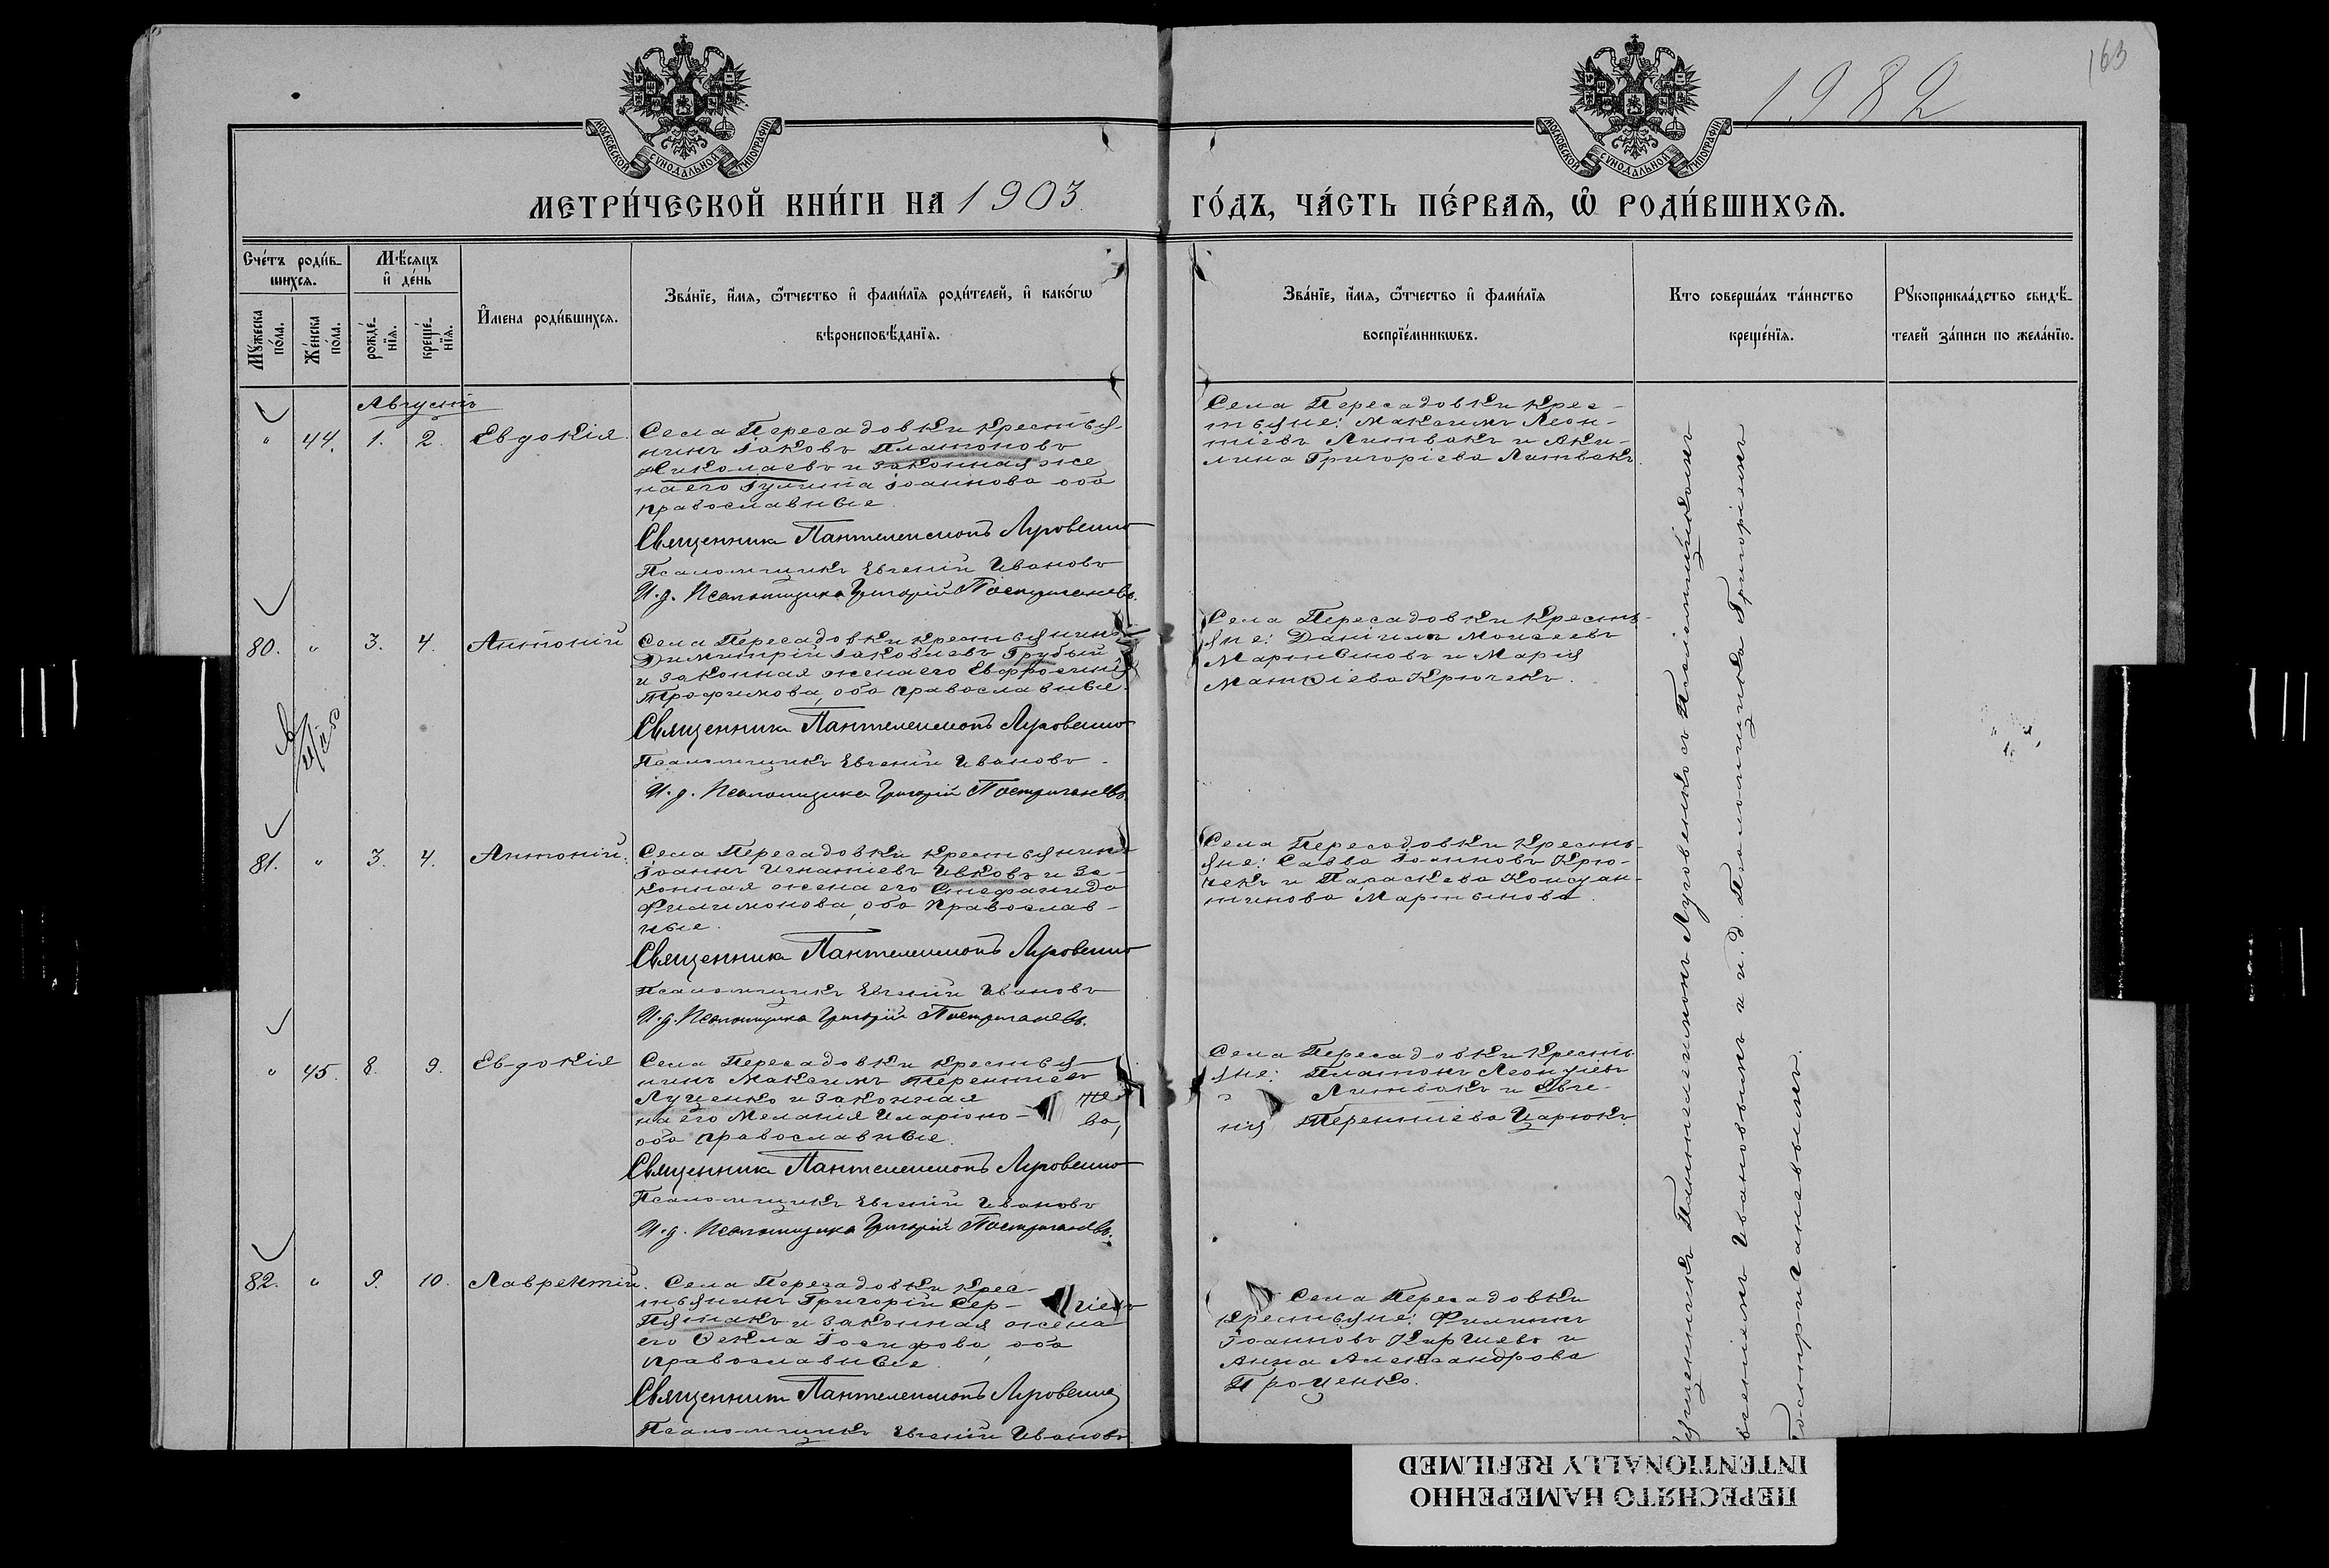 1982
163
МОСКОВСКОЙ СѴНОДАЛЬНОЙ ТИПОГРАФІИ
МОСКОВСКОЙ СѴНОДАЛЬНОЙ ТИПОГРАФІИ
МЕТРИ́ЧЕСКОЙ КНИ́ГИ НА 1903
ГО́ДЪ, ЧА́СТЬ ПЕ́РВАЯ, Ѡ҆ РОДИ́ВШИХСЯ.
Сче́тъ роди́в-
шихся.
Мꙋ́жеска по́ла.
Же́нска по́ла.
Мѣ́сяцъ и҆ де́нь
рожде́-
нїя.
креще́-
нїя.
И҆мена роди́вшихся.
Зва́нїе, и҆́мя, ѻ҆́тчество и҆ фамѝлїя роди́телей, и҆ како́гѡ
вѣроисповѣ́данїя.
Зва́нїе, и҆́мя, ѻ҆́тчество и҆ фами́лїя
воспрїе́мникѡвъ.
Кто соверша́лъ та́инство
креще́нїя.
Рꙋкоприкла́дство свидѣ́-
телей за́писи по жела́нїю.
Августъ
" 44. 1. 2. Евдокія.
Села Пересадовки крестья-
нинъ Іаковъ Платоновъ
Николаевъ и законная же
на его Іулита Іоаннова оба
православные.
Священникъ Пантелеимонъ Луговенко
Псаломщикъ Евгеній Ивановъ
И. д. Псаломщика Григорій Постригачевъ.
Села Пересадовки крес-
тьяне: Максимъ Леон-
тіевъ Литвакъ и Аки-
лина Григоріева Литвакъ
80. " 3. 4. Антоній
Села Пересадовки крестьянинъ
Димитрій Іаковлевъ Грубый
и законная жена его Евфросинія
Трофимова, оба православные.
Священникъ Пантелеимонъ Луговенко
Псаломщикъ Евгеній Ивановъ
И. д. Псаломщика Григорій Постригачевъ.
Села Пересадовки кресть-
яне: Даніилъ Моисеевъ
Мартыновъ и Марія
Матѳіева Крючекъ.
81. " 3. 4. Антоній.
Села Пересадовки крестьянинъ
Іоаннъ Игнатіевъ Ивковъ и за-
конная жена его Стефанида
Филимонова, оба православ-
ные.
Священникъ Пантелеимонъ Луговенко
Псаломщикъ Евгеній Ивановъ
И. д. Псаломщика Григорій Постригачевъ.
Села Пересадовки кресть-
яне: Савва Іоанновъ Крю-
чекъ и Параскева Констан-
тинова Мартынова.
" 45. 8. 9. Евдокія
Села Пересадовки крестья-
нинъ Максимъ Терентіевъ
Луценко и законная же
на его Меланія Иларіоно- ва,
оба православные.
Священникъ Пантелеимонъ Луговенко
Псаломщикъ Евгеній Ивановъ
И. д. Псаломщика Григорій Постригачевъ.
Села Пересадовки кресть-
яне: Платонъ Леонтіевъ
Литвакъ и Евге-
нія Терентіева Царюкъ.
82. " 9. 10. Лаврентій.
Села Пересадовки крес-
тьянинъ Григорій Сер- гіевъ
Пятакъ и законная жена
его Ѳекла Іосифова, оба
православные.
Священникъ Пантелеимонъ Луговенко
Псаломщикъ Евгеній Ивановъ
Села Пересадовки
крестьяне: Филиппъ
Іоанновъ и
Анна Александрова
Проценко.
Священникъ Пантелеимонъ Луговенко съ Псаломщикомъ
Евгеніемъ Ивановымъ и и. д. Псаломщика Григоріемъ
Постригачевымъ.
ПЕРЕСНЯТО НАМЕРЕННО
INTENTIONALLY REFILMED